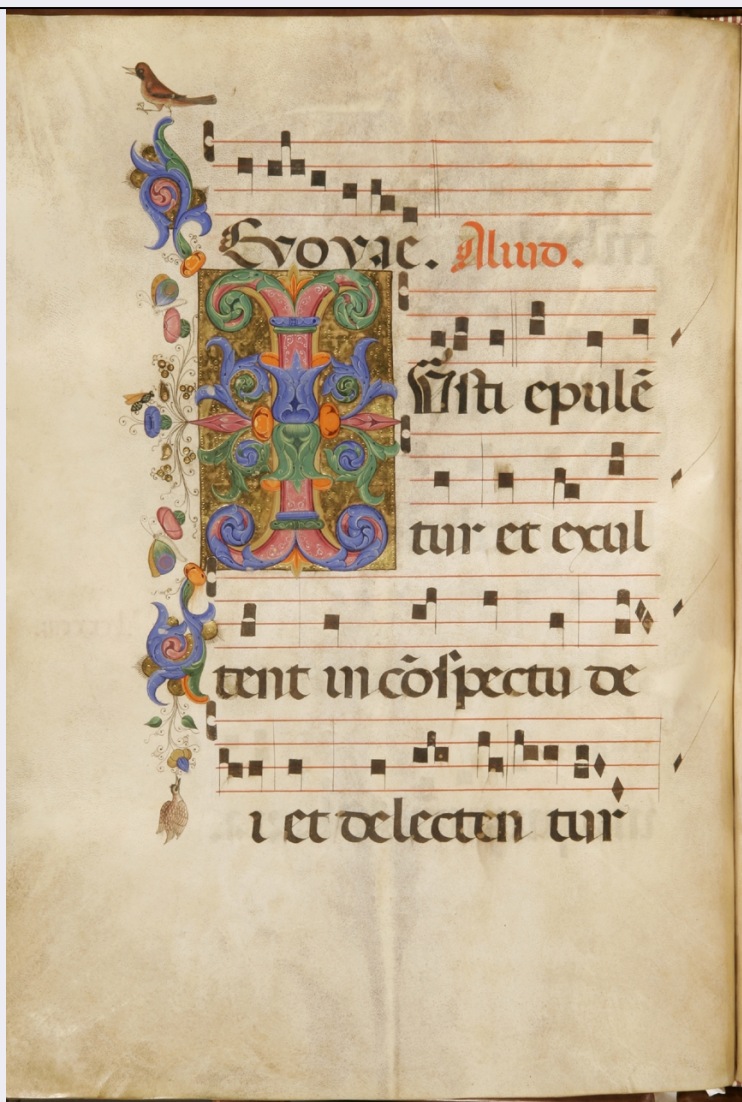 Evovae. Aliud.
IVSti epulē
tur et exul
tent in cōſpectu de
i et delecten tur